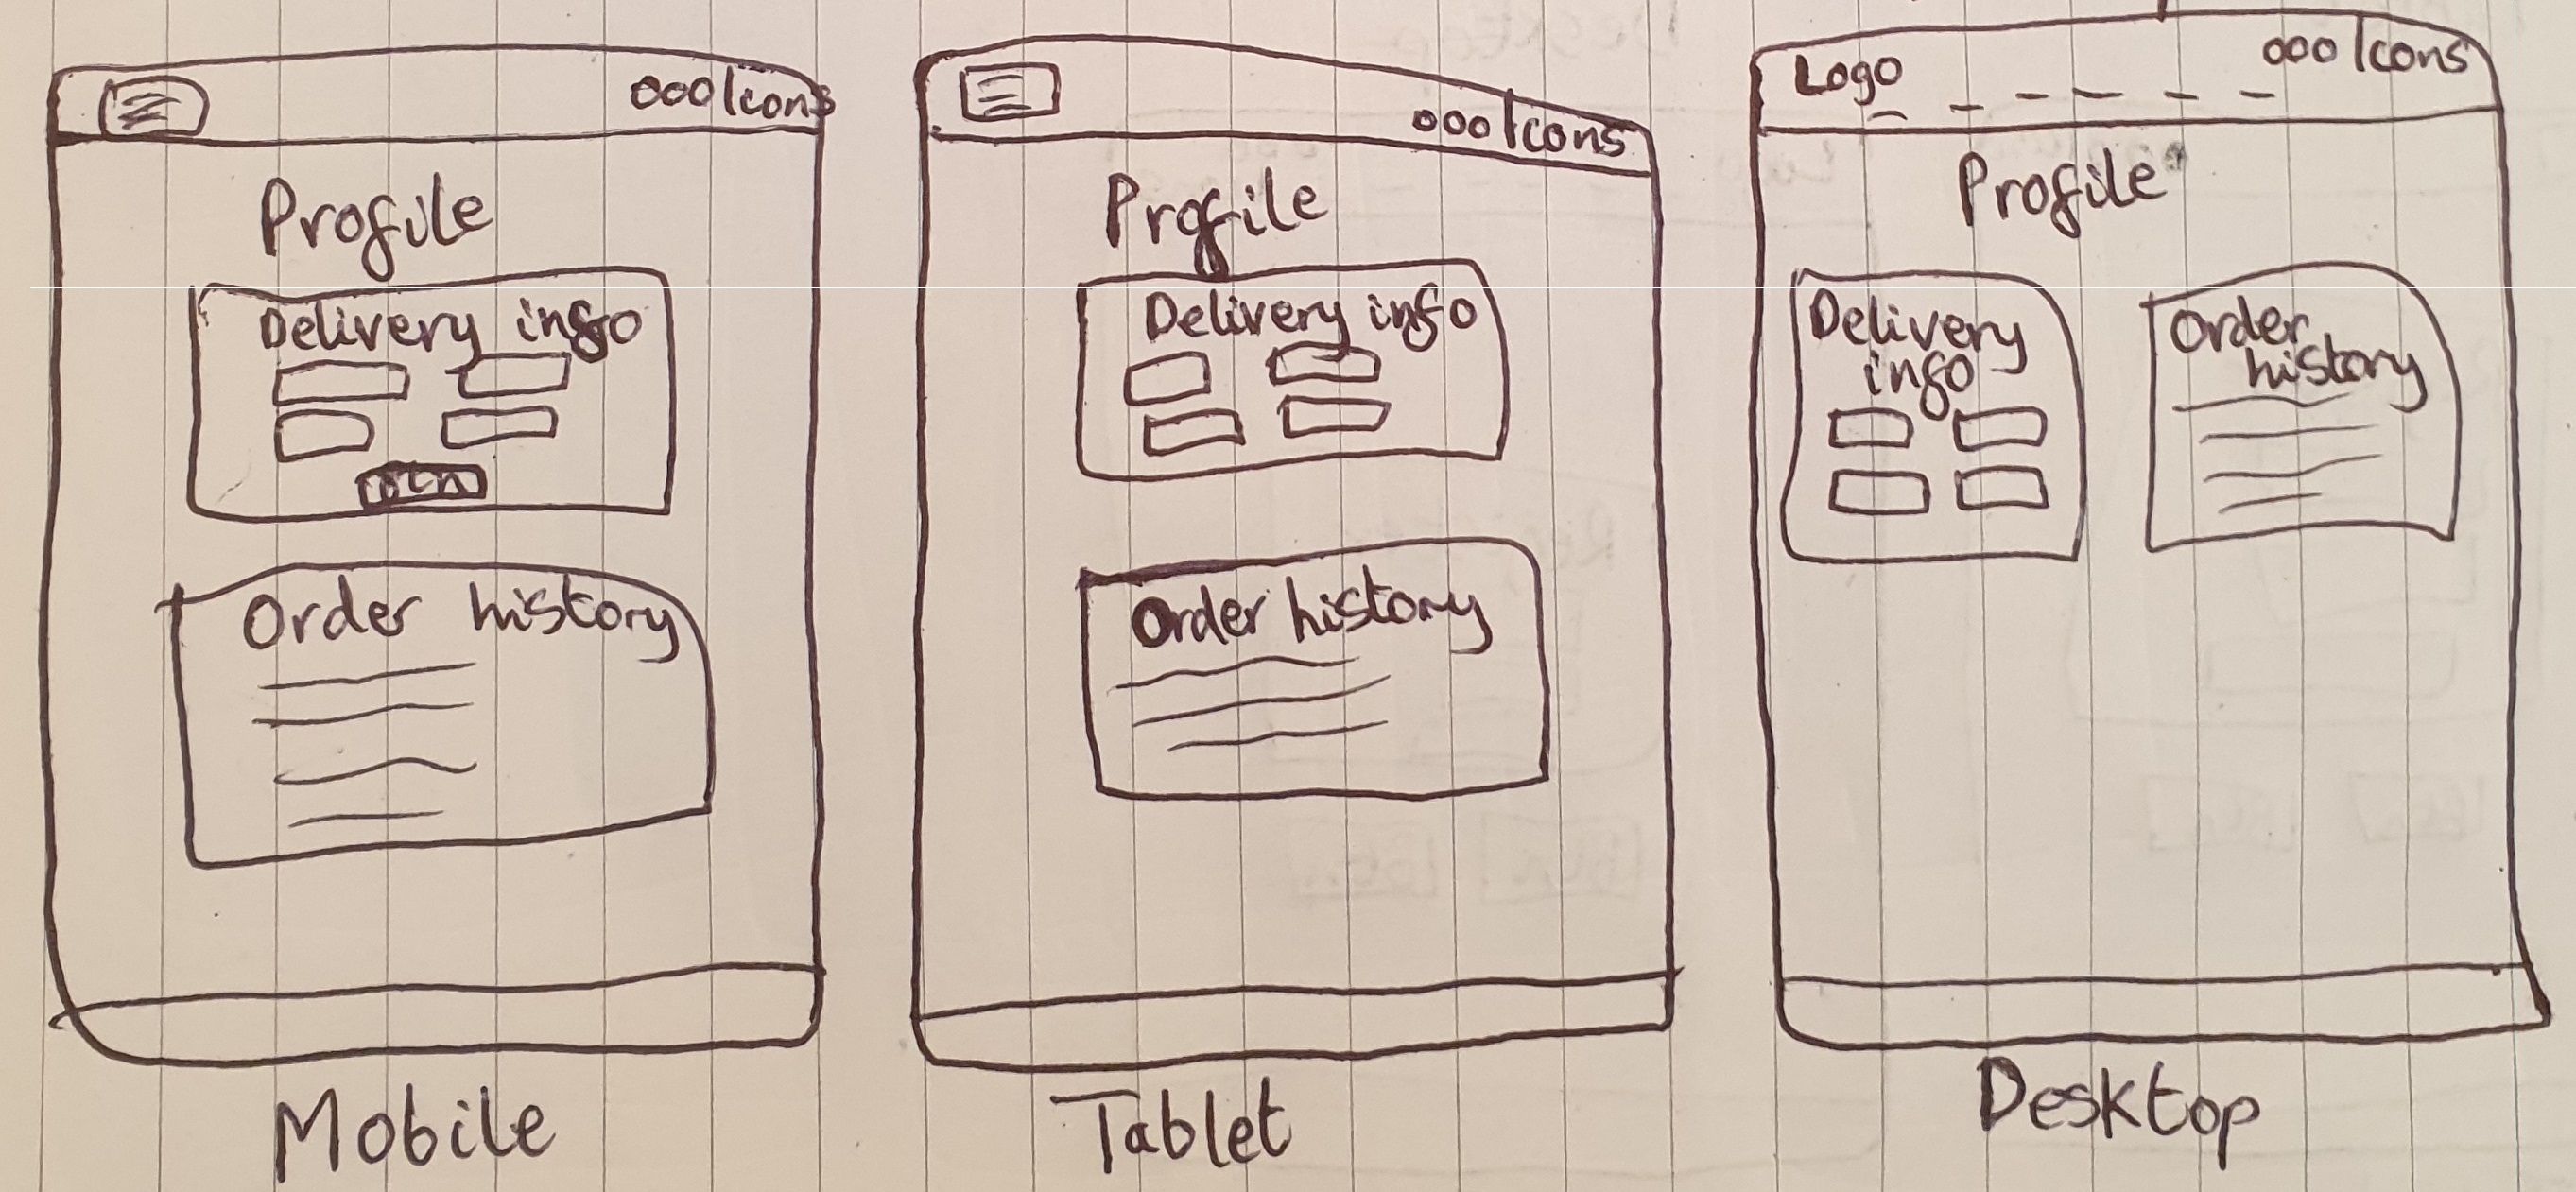 ooo Icons
Profile
Delivery info
btn
Order history
Mobile
ooo Icons
Profile
Delivery info
Order history
Tablet
Logo
ooo Icons
Profile
Delivery
info
Order
history
Desktop